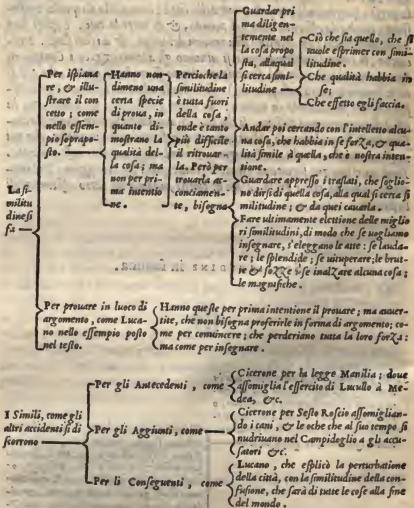 La si-
militu
dine si
fa
Per ispiana
re, & illu-
strare il con
cetto; come
nello essem-
pio sopraposto-
sto.
Hanno non-
dimeno una
certa specie
di proua, in
quanto di-
mostrano la
qualità del-
la cosa; ma
non per pri-
ma intentio
ne.
Percioche la
similitudine
è tutta fuori
della cosa,
onde è tanto
più difficile
il ritrouar-
la. Però per
trouarla ac-
conciamen-
te, bisogna
Guardar pri
ma diligen-
temente nel
la cosa propo
sta, allaqual
si cerca simi-
litudine
Ciò che sia quello, che si
uuole esprimer con simi-
litudine.
Che qualità habbia in
se;
Che effetto egli faccia.
Andar poi cercando con l'intelletto alcu-
na cosa, che habbia in se forza, & qua-
lità simile à quella, che è nostra inten-
tione.
Guardare appresso i traslati, che soglio-
no dirsi di quella cosa, alla qual si cerca si
militudine; & da quei cauarla.
Fare ultimamente elettione delle miglio
ri similitudini, di modo che se uogliamo
insegnare, s'eleggano le atte: se lauda-
re; le splendide; se uituperare; le brut-
te & sozze: se inalzare alcuna cosa;
le magnifiche.
Per prouare in luoco di
argomento, come Luca-
no nello essempio posto
nel testo.
Hanno queste per prima intentione il prouare; ma auuer-
tite, che non bisogna proferirle in forma di argomento; co-
me per conuincere; che perderiano tutta la loro forza:
ma come per insegnare.
I Simili, come gli
altri accidenti si di
scorrono
Per gli Antecedenti, come
Cicerone per la legge Manilia; doue
assomiglia l'essercito di Lucullo à Me-
dea, &c.
Per gli Aggiunti, come
Cicerone per Sesto Roscio assomiglian-
do i cani, & le oche che al suo tempo si
nudriuano nel Campidoglio a gli accu-
satori &c.
Per li Conseguenti, come
Lucano, che esplicò la perturbatione
della città, con la similitudine della con-
fusione, che sarà di tutte le cose alla fine
del mondo.